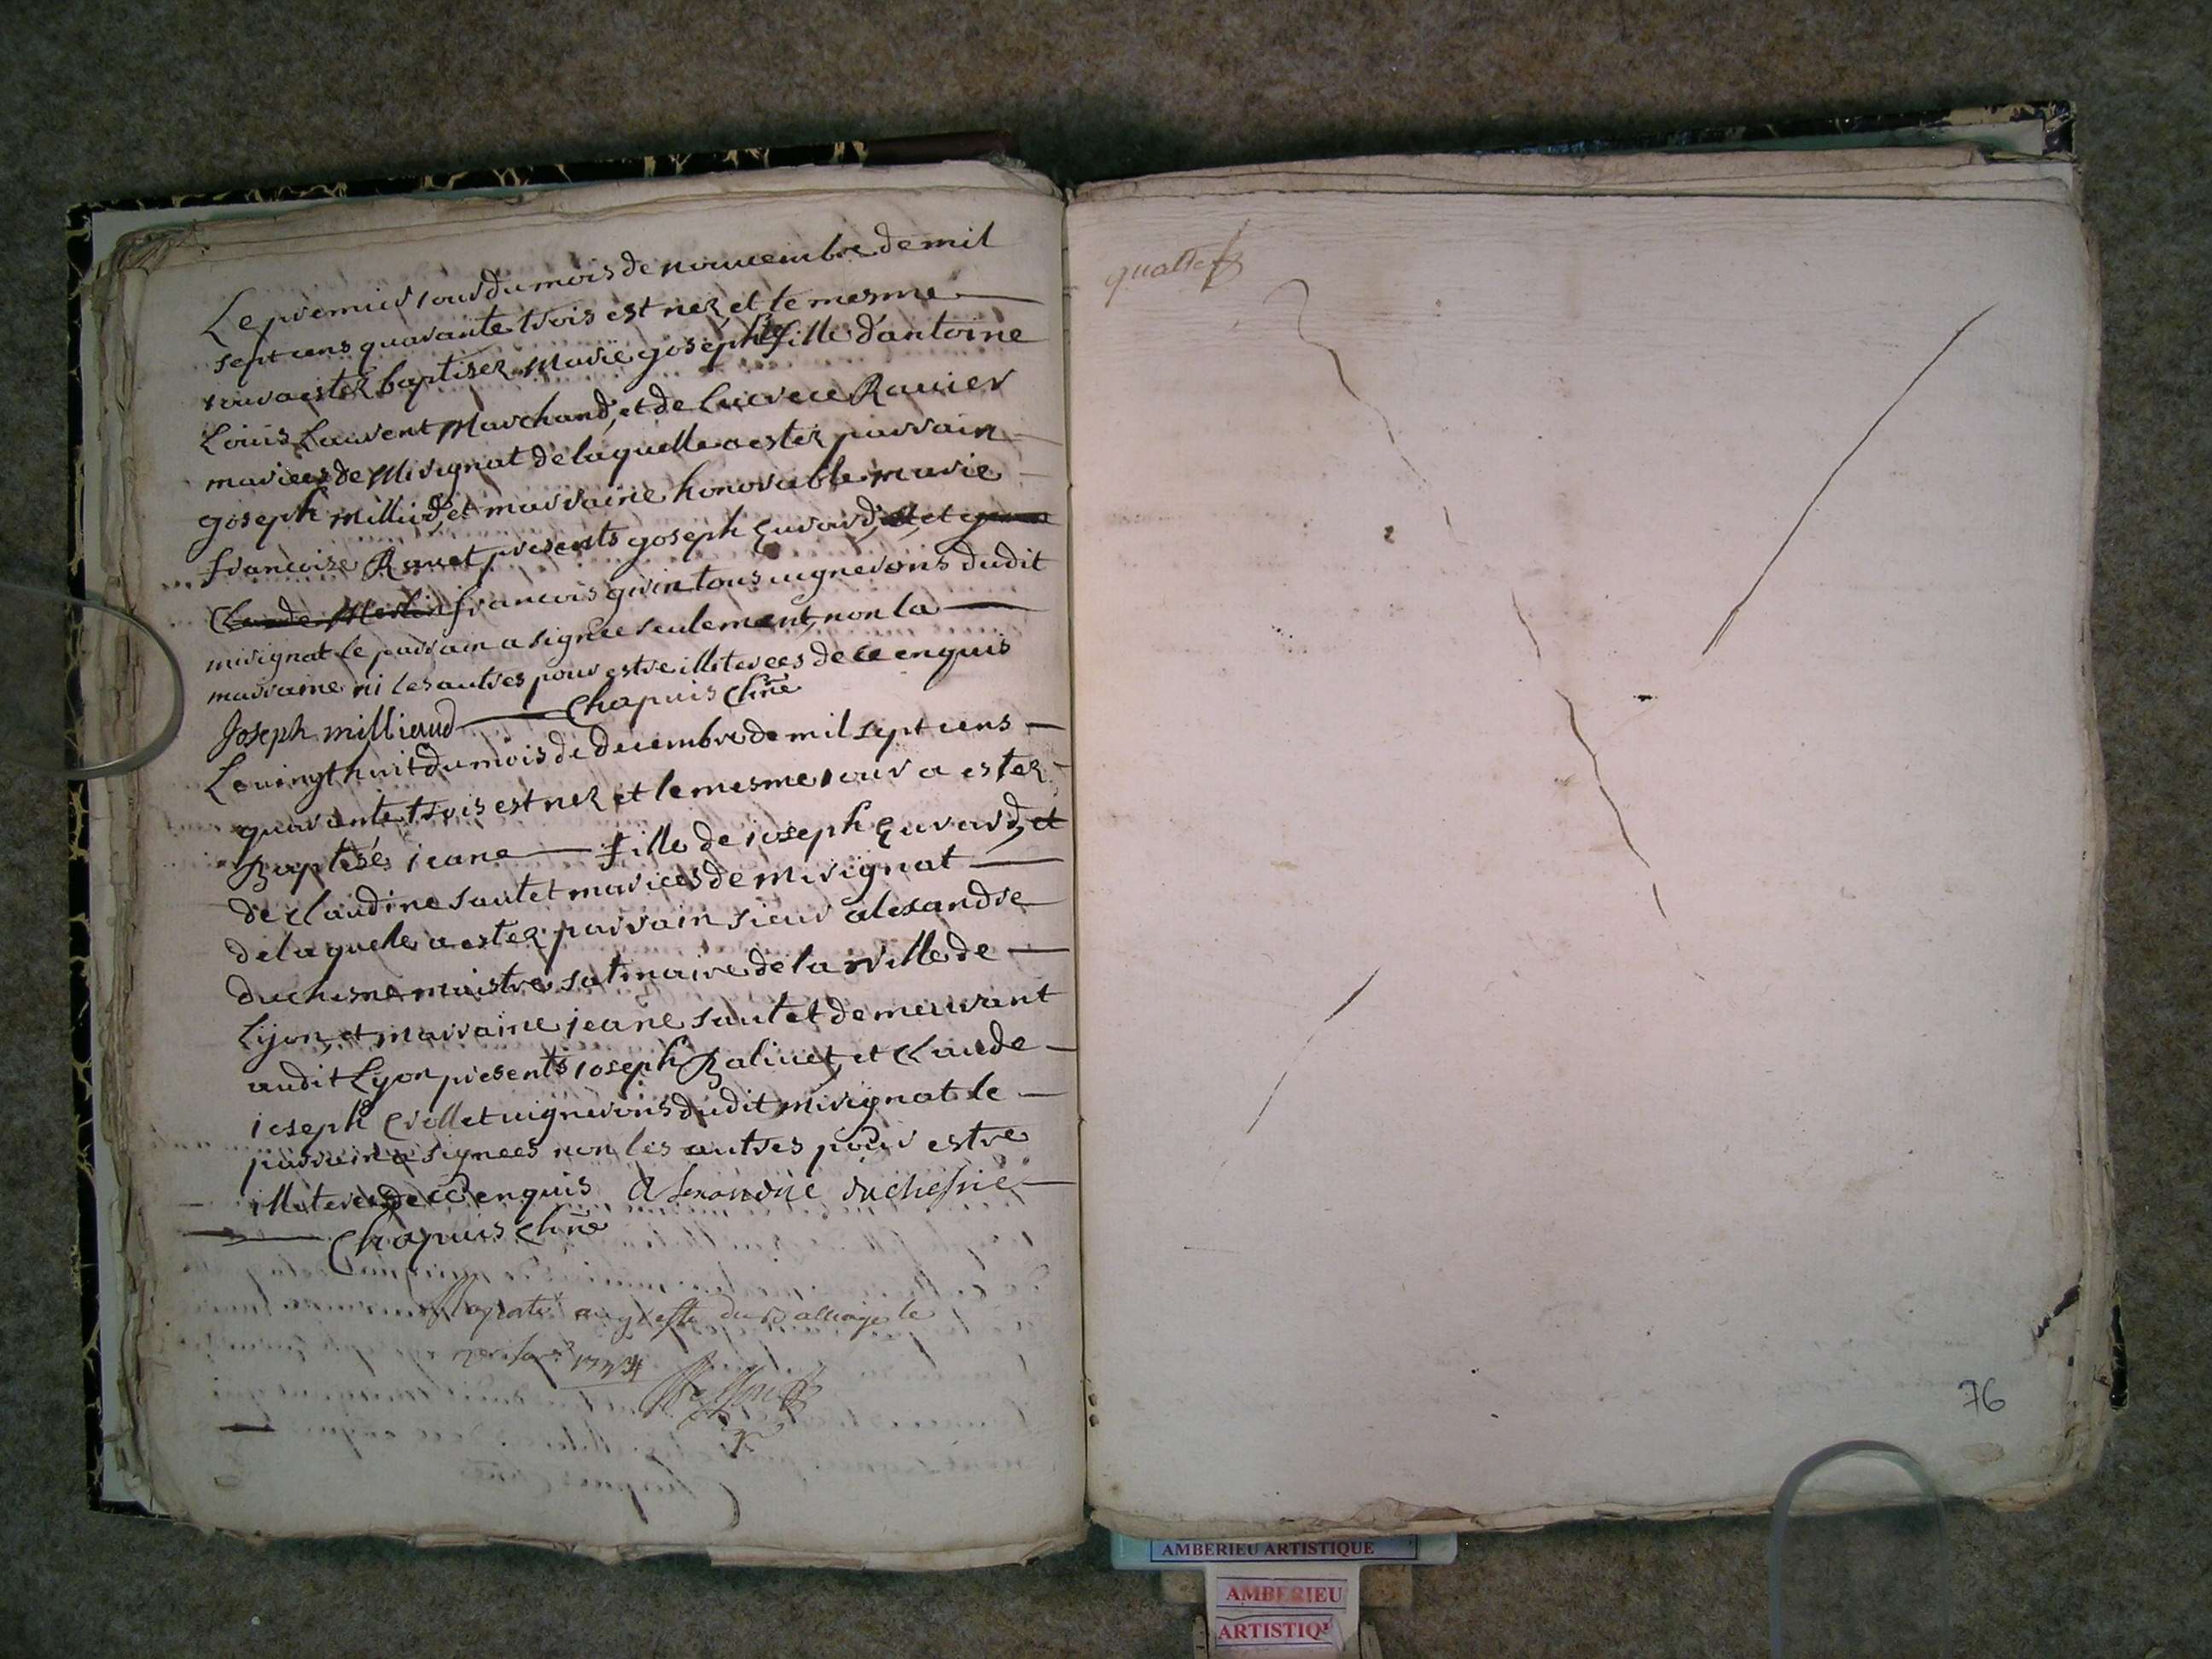 Le premier iour du mois de nouuembre de mil
sept cens quarante trois est nez et le mesme
iour a estez baptisez Marie goseph fille d'antoine
Loüis Laurent Marchand, et de Lucrece Rauier
mariees de Mirignat de laquelle a estez parrain
goseph milliud, et marraine honorable marie
francoise Rouet presents goseph Eurard, et
Claude Merlin francois givin tous uignerons dudit
mirignat le parrain a signee seulement, non la
marraine ni les autres pour estre illiterees de ce enquis
Joseph milliaud Chapuis
Le uingt huit du mois de decembre de mil sept cens
quarante trois est nez et le mesme iour a estez
Baptisés ieane fille de ioseph Eurard, et
de claudine sautet mariees de mirignat
de laquele a estez parrain sieur alexandre
duchesne maistre satinaire de la ville de
Lijon, et marraine ieane sautet demeurant
audit Lyon presents ioseph Baliuet, et claude
ioseph Crollet uignerons dudit mirignat le
parrain a signees non les autres pour estre
illiterees de ce enquis Alexandre duchesne
Chapuis
Raporté au greffe du Balliage le
quatre
76
AMBERIEU ARTISTIQUE
AMBERIEU
ARTISTIQ